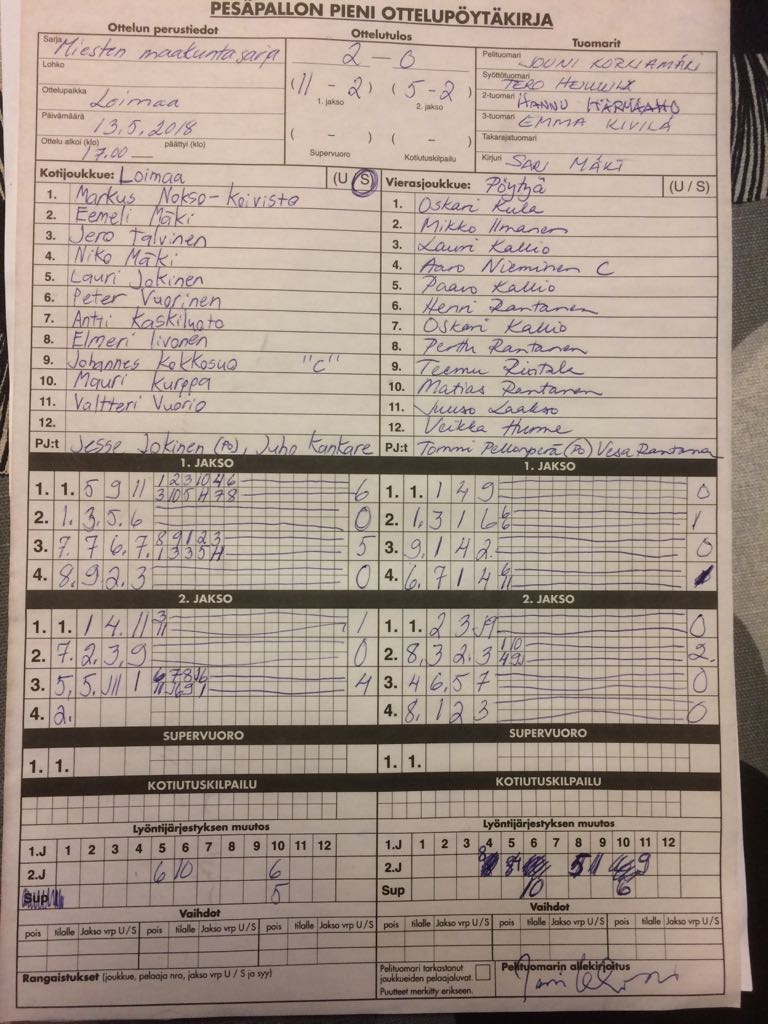 PESÄPALLON PIENI OTTELUPÖYTÄKIRJA
Ottelun perustiedot
Sarja Miesten maakuntasarja
Lohko
Ottelupaikka Loimaa
Päivämäärä 13.5.2018
Ottelu alkoi (klo) päättyi (klo)
17.00 —
Ottelutulos
2 – 0
(11 – 2) (5 – 2)
1. jakso 2. jakso
( – ) ( – )
Supervuoro Kotiutuskilpailu
Tuomarit
Pelituomari JOUNI KORKIAMÄKI
Syöttötuomari TERO
2-tuomari HANNU HÄRMÄAHO
3-tuomari EMMA KIVILÄ
Takarajatuomari
Kirjuri SARI MÄKI
Kotijoukkue: Loimaa (U / S)
1. Markus Nokso-Koivisto
2. Eemeli Mäki
3. Jero Talvinen
4. Niko Mäki
5. Lauri Jokinen
6. Peter Vuorinen
7. Antti Kaskiluoto
8. Elmeri Iivonen
9. Johannes Kokkosuo "C"
10. Mauri Kurppa
11. Valtteri Vuorio
12.
PJ:t Jesse Jokinen (PO), Juho Kankare
Vierasjoukkue: Pöytyä (U / S)
1. Oskari Kula
2. Mikko Ilmanen
3. Lauri Kallio
4. Aaro Nieminen C
5. Paavo Kallio
6. Henri Rantanen
7. Oskari Kallio
8. Perttu Rantanen
9. Teemu
10. Matias Rantanen
11. Juuso Laakso
12. Veikka Hurme
PJ:t Tommi Pellonperä (PO) Vesa Rantanen
1. JAKSO
1. 1. 5 9 11 1 2 3 10 4 6 6
3 10 5 11 7 8
2. 1. 3. 5. 6 0
3. 7. 7 6. 7. 8 9 1 2 3 5
1 3 3 5 11
4. 8. 9 2. 3 0
1. JAKSO
1. 1. 1 4 9 0
2. 1. 3 1 6 6 1
6
3. 9. 1 4 2. 0
4. 6. 7 1 4 6
11
2. JAKSO
1. 1. 1 4. 11 3 1
11
2. 7. 2. 3. 9 0
3. 5, 5. 11 1 6 7 8 4
4. 2.
2. JAKSO
1. 1. 2 3 9 0
2. 8, 3 2. 3 1 10 2.
4 9
3. 4 6. 5 7 0
4. 8. 1 2 3 0
SUPERVUORO
1. 1.
SUPERVUORO
1. 1.
KOTIUTUSKILPAILU
KOTIUTUSKILPAILU
Lyöntijärjestyksen muutos
1.J 1 2 3 4 5 6 7 8 9 10 11 12
2.J 6 10 6
Sup 5
Lyöntijärjestyksen muutos
1.J 1 2 3 4 5 6 7 8 9 10 11 12
2.J 5 11 9
Sup 10 6
Vaihdot
pois tilalle Jakso vrp U / S pois tilalle Jakso vrp U / S pois tilalle Jakso vrp U / S
Vaihdot
pois tilalle Jakso vrp U / S pois tilalle Jakso vrp U / S pois tilalle Jakso vrp U / S
Rangaistukset (joukkue, pelaaja nro, jakso vrp U / S ja syy)
Pelituomari tarkastanut
joukkueiden pelaajaluvat.
Puutteet merkitty erikseen.
Pelituomarin allekirjoitus